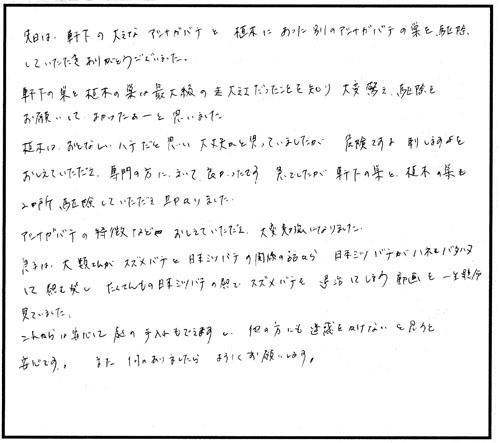 先日は、軒下の大きなアシナガバチと植木にあった別のアシナガバチの巣を、駆除
していただきありがとうございました。
軒下の巣と植木の巣は最大級の大きさだったことを知り 大変驚き、駆除を
お願いして よかったぁーと思いました
植木は、おとなしいハチだと思い 大丈夫かと思っていましたが 危険ですよ 刺しますよと
おしえていただき、専門の方に、きいて 良かったです 見てしたが 軒下の巣と、植木の巣も
2か所 駆除していただき 助かりました。
アシナガバチの特徴なども おしえていただき、大変勉強になりました。
息子は、大類さんが スズメバチと日本ミツバチの関係の話から 日本ミツバチがハネをバタバタ
して熱を発し たくさんの日本ミツバチの熱で スズメバチを 退治にしよう 動画を 一生懸命
見ていました。
これからは安心して 庭の手入れもできますし、他の方にも迷惑をかけない と思うと
安心です。 また 何かありましたら よろしくお願いします。